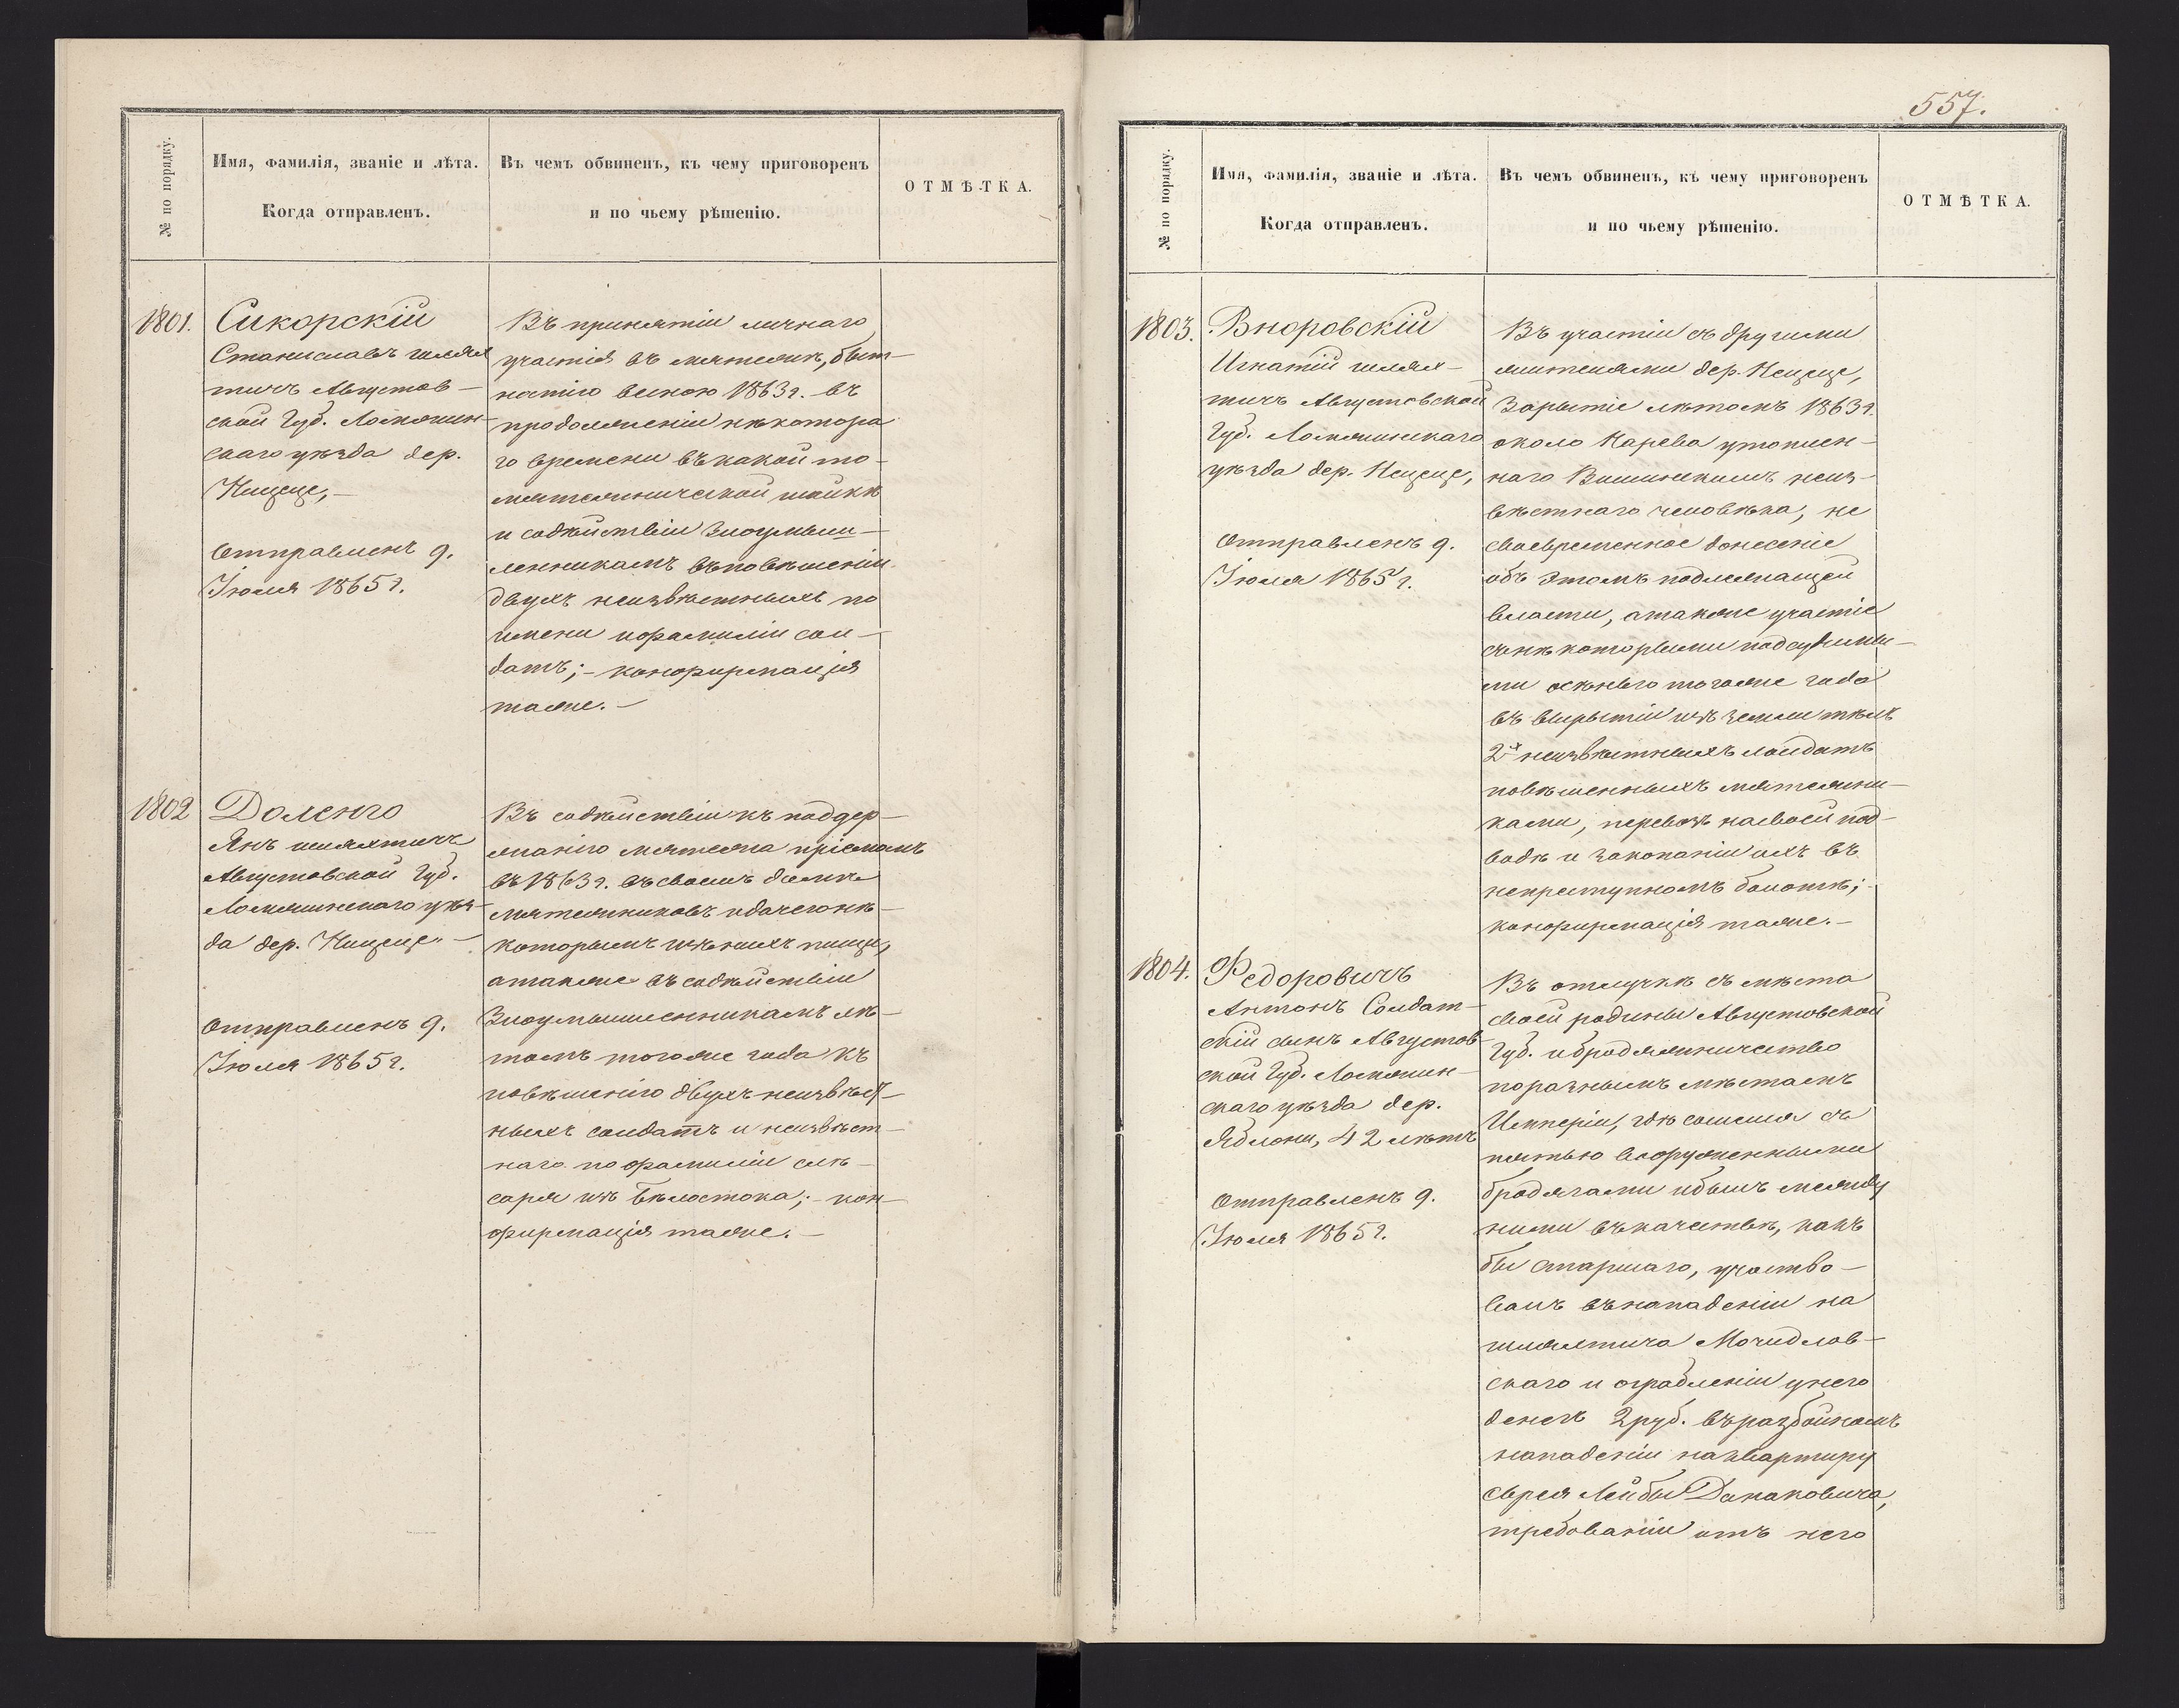 № по порядку.
Имя, фамилія, званіе и лѣта.
Когда отправленъ.
Въ чемъ обвиненъ, къ чему приговоренъ
и по чьему рѣшенію.
ОТМѢТКА.
1801.
Сикорскій
Станиславъ шлях
тичъ Августов-
ской Губ. Ломжин-
скаго уѣзда дер.
Нищеце,-
Отправленъ 9.
Іюля 1865 г.
Въ принятіи личнаго
участія въ мятежѣ, быт-
ностію весною 1863 г. въ
продолженіи нѣкотора
го времени въ какой то-
мятежнической шайкѣ
и содѣйствіи злоумыш-
ленникамъ въ повѣшеніи
двухъ неизвѣстныхъ по
имени и фамиліи сол-
датъ;- конфирмація
таже.-
1802
Доленго
Янъ шляхтичъ
Августовской Губ.
Ломжинскаго уѣз-
да дер. Нищеце-
Отправленъ 9.
Іюля 1865 г.
Въ содѣйствіи къ поддер-
жанію мятежа пріемомъ
въ 1863 г. въ своемъ домѣ
мятежниковъ и дачею нѣ-
которымъ изъ нихъ пищи,
а также въ содѣйствіи
злоумышленникамъ лѣ-
томъ того же года къ
повѣшенію двухъ неизвѣст-
ныхъ солдатъ и неизвѣст-
наго по фамиліи слѣ-
саря изъ Бѣлостока;- кон-
фирмація таже.-
557.
№ по порядку.
Имя, фамилія, званіе и лѣта.
Когда отправленъ.
Въ чемъ обвиненъ, къ чему приговоренъ
и по чьему рѣшенію.
ОТМѢТКА.
1803.
Вноровскій
Игнатій шлях-
тичъ Августовской
Губ. Ломжинскаго
уѣзда дер. Нещеце,
Отправленъ 9.
Іюля 1865 г.
Въ участіи съ другими
жителями дер. Нещеце,
Зарытіе лѣтомъ 1863 г.
около Нарева утоплен-
наго неиз-
вѣстнаго человѣка, не
своевременное донесеніе
объ этомъ подлежащей
власти, а также участіе
съ нѣкоторыми подсудимы-
ми осенью того же года
въ вырытіи изъ земли тѣлъ
2х неизвѣстныхъ солдатъ
повѣшенныхъ мятежни-
ками, перевозъ на своей под-
водѣ и закопаніи ихъ въ
непреступномъ болотѣ;-
конфирмація таже.-
1804.
Федоровичъ
Антонъ Солдат-
скій сынъ Августов
ской Губ. Ломжин-
скаго уѣзда дер.
Яблони, 42 лѣтъ
Отправленъ 9.
Іюля 1865 г.
Въ отлучкѣ съ мѣста
своей родины Августовской
Губ. и бродяжничество
по разнымъ мѣстамъ
Имперіи, гдѣ сошелся съ
пятью вооруженными
бродягами и бывъ между
ними въ качествѣ, какъ
бы старшаго, участво-
валъ въ нападеніи на
шляхтича Мочидлов-
скаго и ограбленіи у него
денегъ 2 руб. въ разбойномъ
нападеніи на квартиру
еврея Лейбы Данаковича,
требованіи отъ него